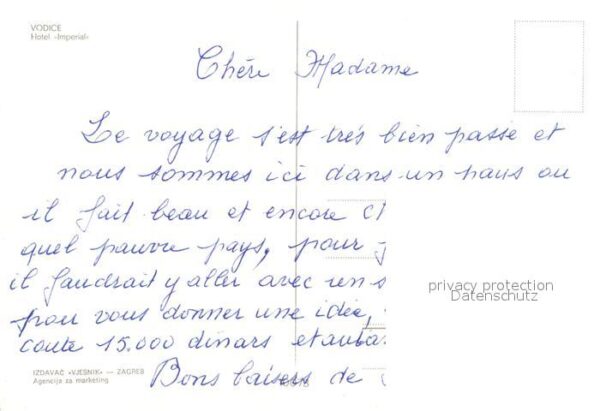 VODICE
Hotel »Imperial«
Chère Madame
Le voyage s'est très bien passé et
nous sommes ici dans un pays ou
il fait beau et encore
quel pauvre pays, pour
il faudrait y aller avec un
pour vous donner une idée,
coute 15.000 dinars et
Bons baisers de
privacy protection
Datenschutz
IZDAVAČ »VJESNIK« — ZAGREB
Agencija za marketing